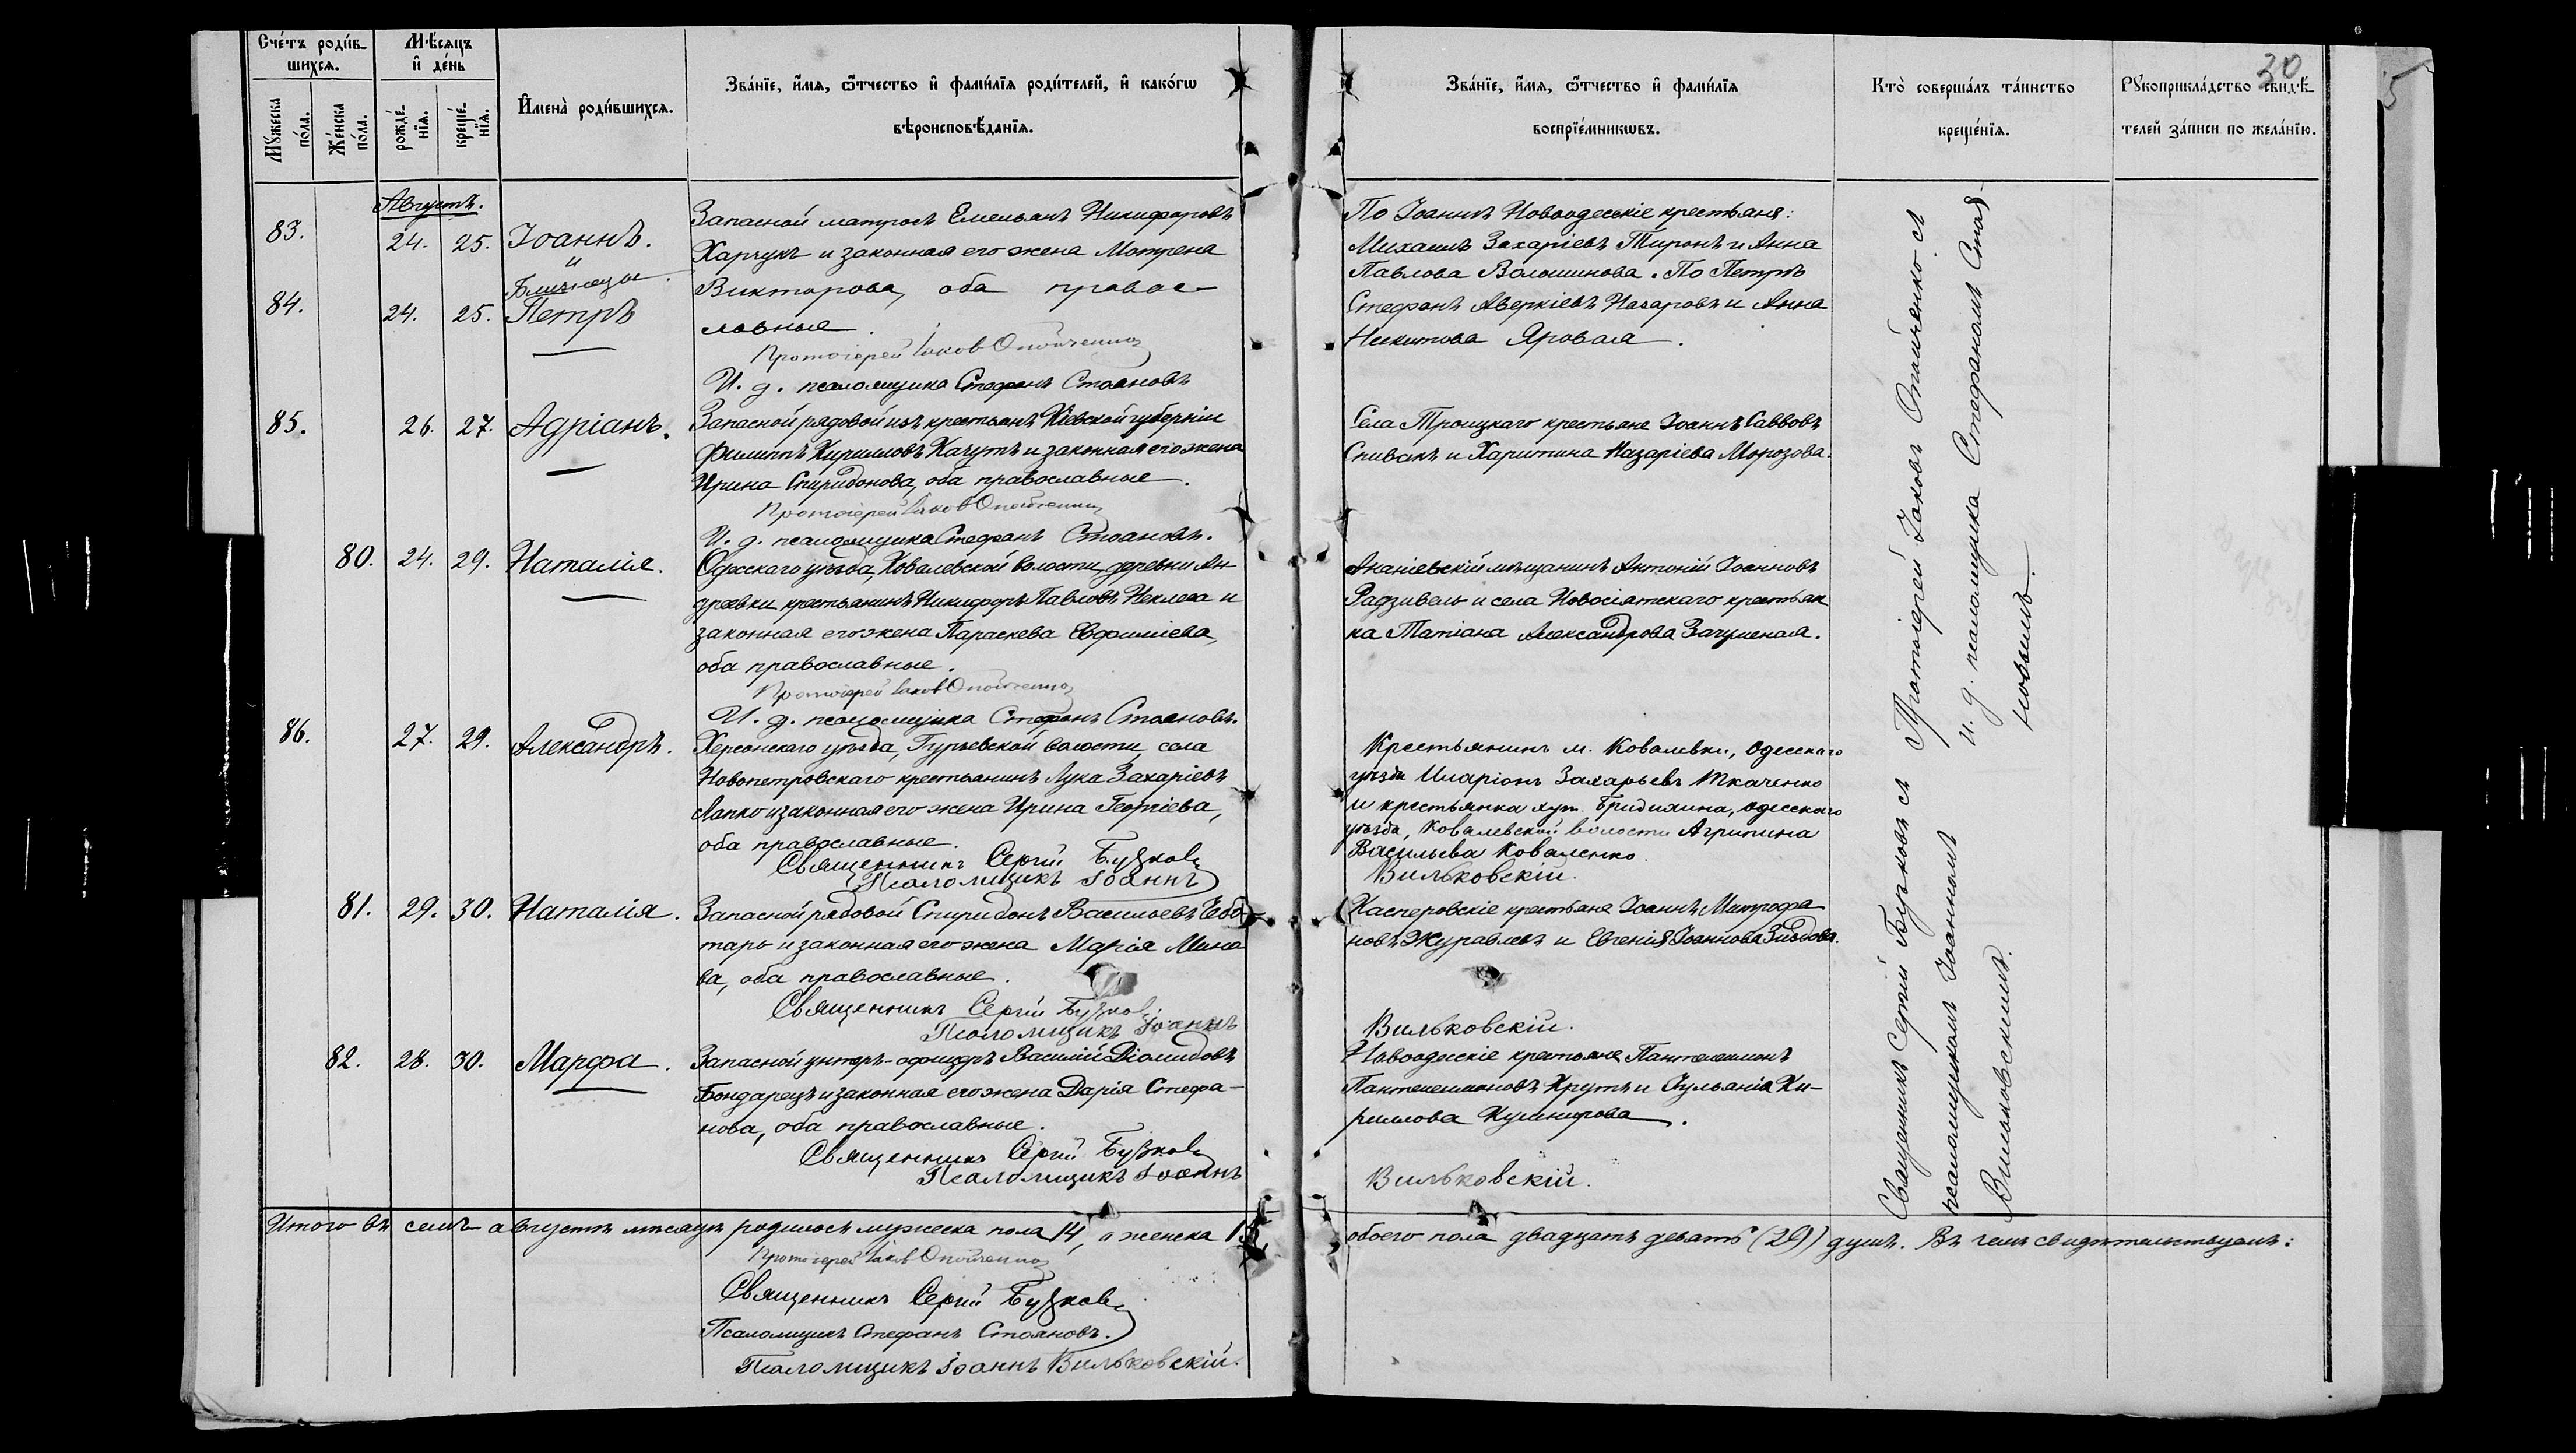 30
Счетъ родив-
шихся.
Мѣсяцъ
и день
Мужеска
пола.
Женска
пола.
рожде-
нія.
креще-
нія.
Имена родившихся.
Званіе, имя, отчество и фамилія родителей, и какого
вѣроисповѣданія.
Званіе, имя, отчество и фамилія
воспріемниковъ.
Кто совершалъ таинство
крещенія.
Рукоприкладство свидѣ-
телей записи по желанію.
Августъ.
83.
24. 25. Іоаннъ.
и
Близнецы
84.
24. 25. Петръ
Запасной матросъ Емельянъ Никифоровъ
Харчукъ и законная его жена Матрена
Викторова, оба правос-
лавные.
Протоіерей Іаков Опойченко
И. д. псаломщика Стефанъ Стояновъ
По Іоаннѣ Новоодесскіе крестьяня:
Михаилъ Захаріевъ Тиронъ и Анна
Павлова Волошинова. По Петрѣ
Стефанъ Аверкіевъ Назаровъ и Анна
Никитова Яровая.
85. 26. 27. Адріанъ.
Запасной рядовой изъ крестьянъ Кіевской губерніи
Филиппъ Кирилловъ Качутъ и законная его жена
Ирина Спиридонова, оба православные.
Протоіерей Іаков Опойченко
И. д. псаломщика Стефанъ Стояновъ.
Села Троицкаго крестьяне Іоаннъ Саввовъ
Спивакъ и Харитина Назаріева Морозова.
80. 24. 29. Наталія.
Одесскаго уѣзда, Ковалевской волости деревни Ан
дреевки крестьянинъ Никифоръ Павловъ Неклеса и
законная его жена Параскева Евфиміева,
оба православные.
Протоіерей Іаков Опойченко
И. д. псаломщика Стефанъ Стояновъ.
Ананіевскій мѣщанинъ Антоній Іоанновъ
Радзивелъ и села Новосвятскаго крестьян
ка Татіана Александрова
86. 27. 29. Александръ.
Херсонскаго уѣзда, Гурьевской волости, села
Новопетровскаго крестьянинъ Лука Захаріевъ
Лапко и законная его жена Ирина Георгіева,
оба православные.
Священникъ Сергій Бузков
Псаломщикъ Іоаннъ
Крестьянинъ м. Ковалевки, Одесскаго
уѣзда Иларіонъ Захарьевъ Ткаченко
и крестьянка хут. Одесскаго
уѣзда, Ковалевской волости Агрипина
Васильева Коваленко.
Вильковскій.
81. 29. 30. Наталія.
Запасной рядовой Спиридонъ Васильевъ Чебо
таръ и законная его жена Марія Мино
ва, оба православные.
Священникъ Сергій Бузков
Псаломщикъ Іоаннъ
Касперовскіе крестьяне Іоаннъ Митрофа
новъ Журавлевъ и Евгенія Іоаннова
Вильковскій.
82. 28. 30. Марфа.
Запасной унтеръ-офицеръ Василій Діомидовъ
Бондарецъ и законная его жена Дарія Стефа-
нова, оба православные.
Священникъ Сергій Бузков
Псаломщикъ Іоаннъ
Новоодесскіе крестьяне Пантелеимонъ
Пантелеимоновъ Крутъ и Іуліанія Ки-
риллова Кушнирова.
Вильковскій.
Протоіерей Іаковъ Опойченко съ
и. д. псаломщика Стефаномъ Стоя-
новымъ.
Священникъ Сергій Бузковъ съ
псаломщикомъ Іоанномъ
Вильковскимъ.
Итого въ семъ августѣ мѣсяцѣ родилось мужеска пола 14, а женска 15, обоего пола двадцать девять (29) душъ. Въ чемъ свидѣтельствуемъ:
Протоіерей Іаков Опойченко
Священникъ Сергій Бузков
Псаломщикъ Стефанъ Стояновъ.
Псаломщикъ Іоаннъ Вильковскій.